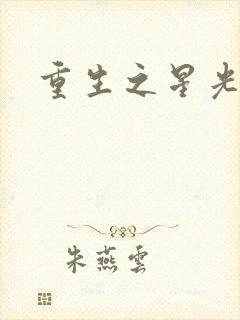 重生之星光
朱燕雲